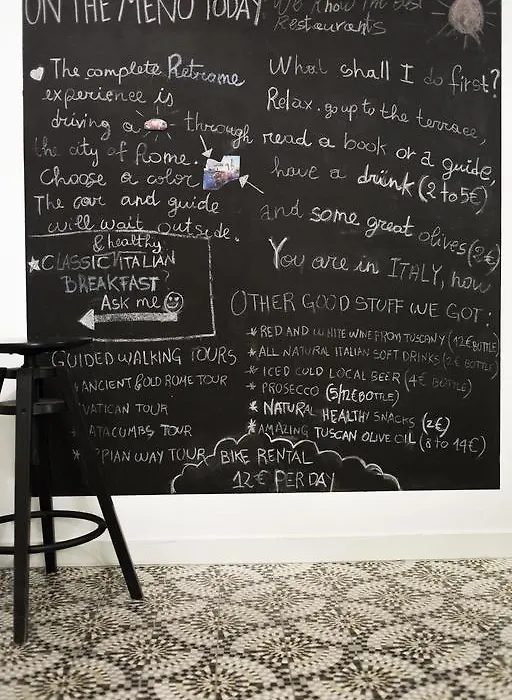 ON THE MENU TODAY
The complete Retrome
experience is
driving a through
the city of Rome.
Choose a color
The car and guide
will wait outside.
& healthy
CLASSIC ITALIAN
BREAKFAST?
Ask me
GUIDED WALKING TOURS
* ANCIENT & OLD ROME TOUR
VATICAN TOUR
CATACOMBS TOUR
* APPIAN WAY TOUR
BIKE RENTAL
12€ PER DAY
We know the best
Restaurants
What shall I do first?
Relax. go up to the terrace,
read a book or a guide,
have a drink (2 to 5€)
and some great olives (2€)
You are in ITALY, now
OTHER GOOD STUFF WE GOT:
* RED AND WHITE WINE FROM TUSCANY (12€ BOTTLE)
* ALL NATURAL ITALIAN SOFT DRINKS (2€ BOTTLE)
* ICED COLD LOCAL BEER (4€ BOTTLE)
* PROSECCO (5/12€ BOTTLE)
* NATURAL HEALTHY SNACKS (2€)
* AMAZING TUSCAN OLIVE OIL (8 to 14€)